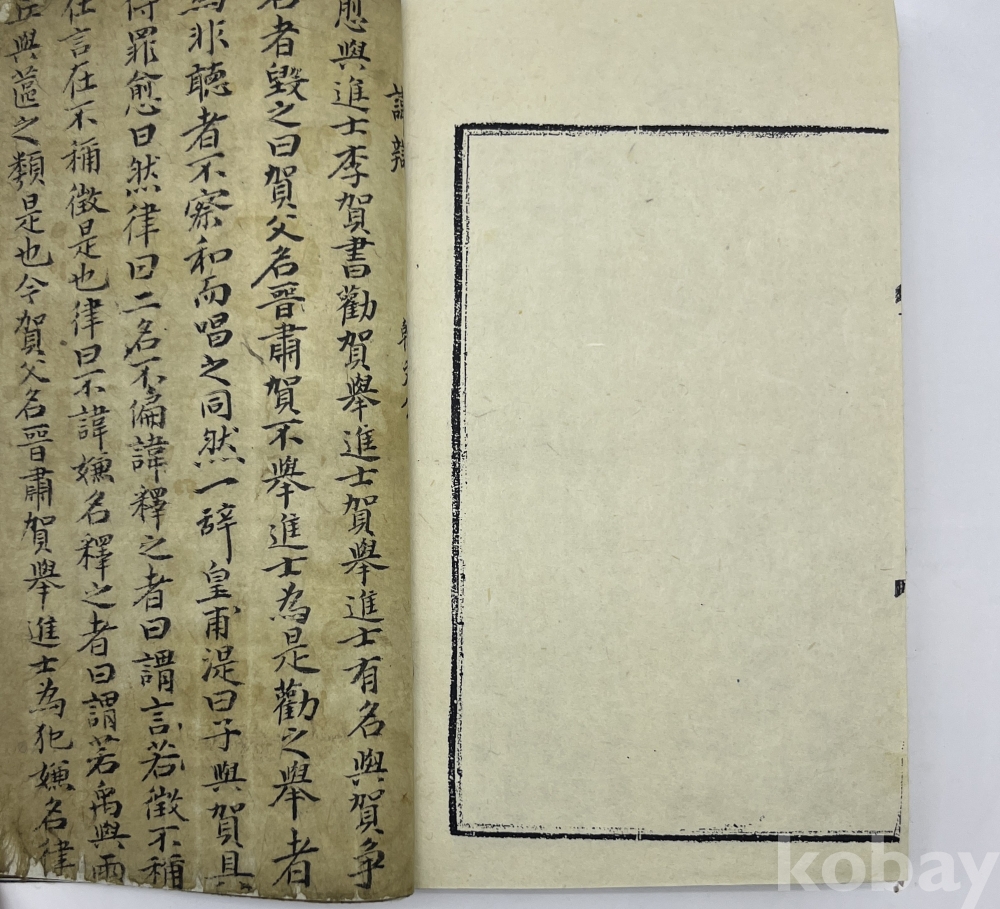 諱辯 韓文公
愈與進士李賀書勸賀舉進士賀舉進士有名與賀爭
名者毀之曰賀父名晉肅賀不舉進士為是勸之舉者
為非聽者不察和而唱之同然一辞皇甫湜曰子與賀且
得罪愈曰然律曰二名不偏諱釋之者曰謂言若徵不稱
在言在不稱徵是也律曰不諱嫌名釋之者曰謂若禹與雨
丘與蓲之類是也今賀父名晉肅賀舉進士為犯嫌名律
kobay